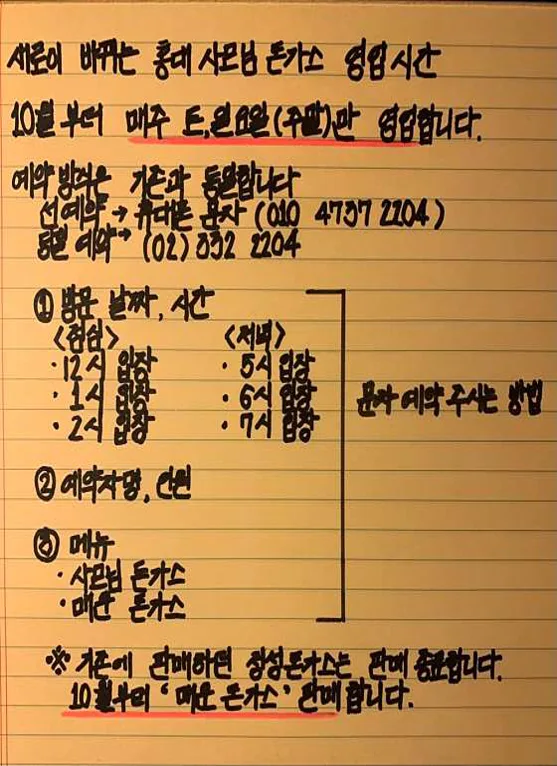 새로이 바뀌는 홍대 사모님 돈가스 영업 시간
10월 부터 매주 토,일요일(주말)만 영업합니다.
예약 방식은 기존과 동일합니다
선예약 → 휴대폰 문자 (010 4737 2204)
당일 예약 → (02) 332 2204
① 방문 날짜, 시간
<점심> <저녁>
· 12시 입장 · 5시 입장
· 1시 입장 · 6시 입장
· 2시 입장 · 7시 입장
문자 예약 주시는 방법
② 예약자명, 인원
③ 메뉴
· 사모님 돈가스
· 매운 돈가스
※ 기존에 판매하던 장성돈가스는 판매 종료합니다.
10월부터 '매운 돈가스' 판매합니다.